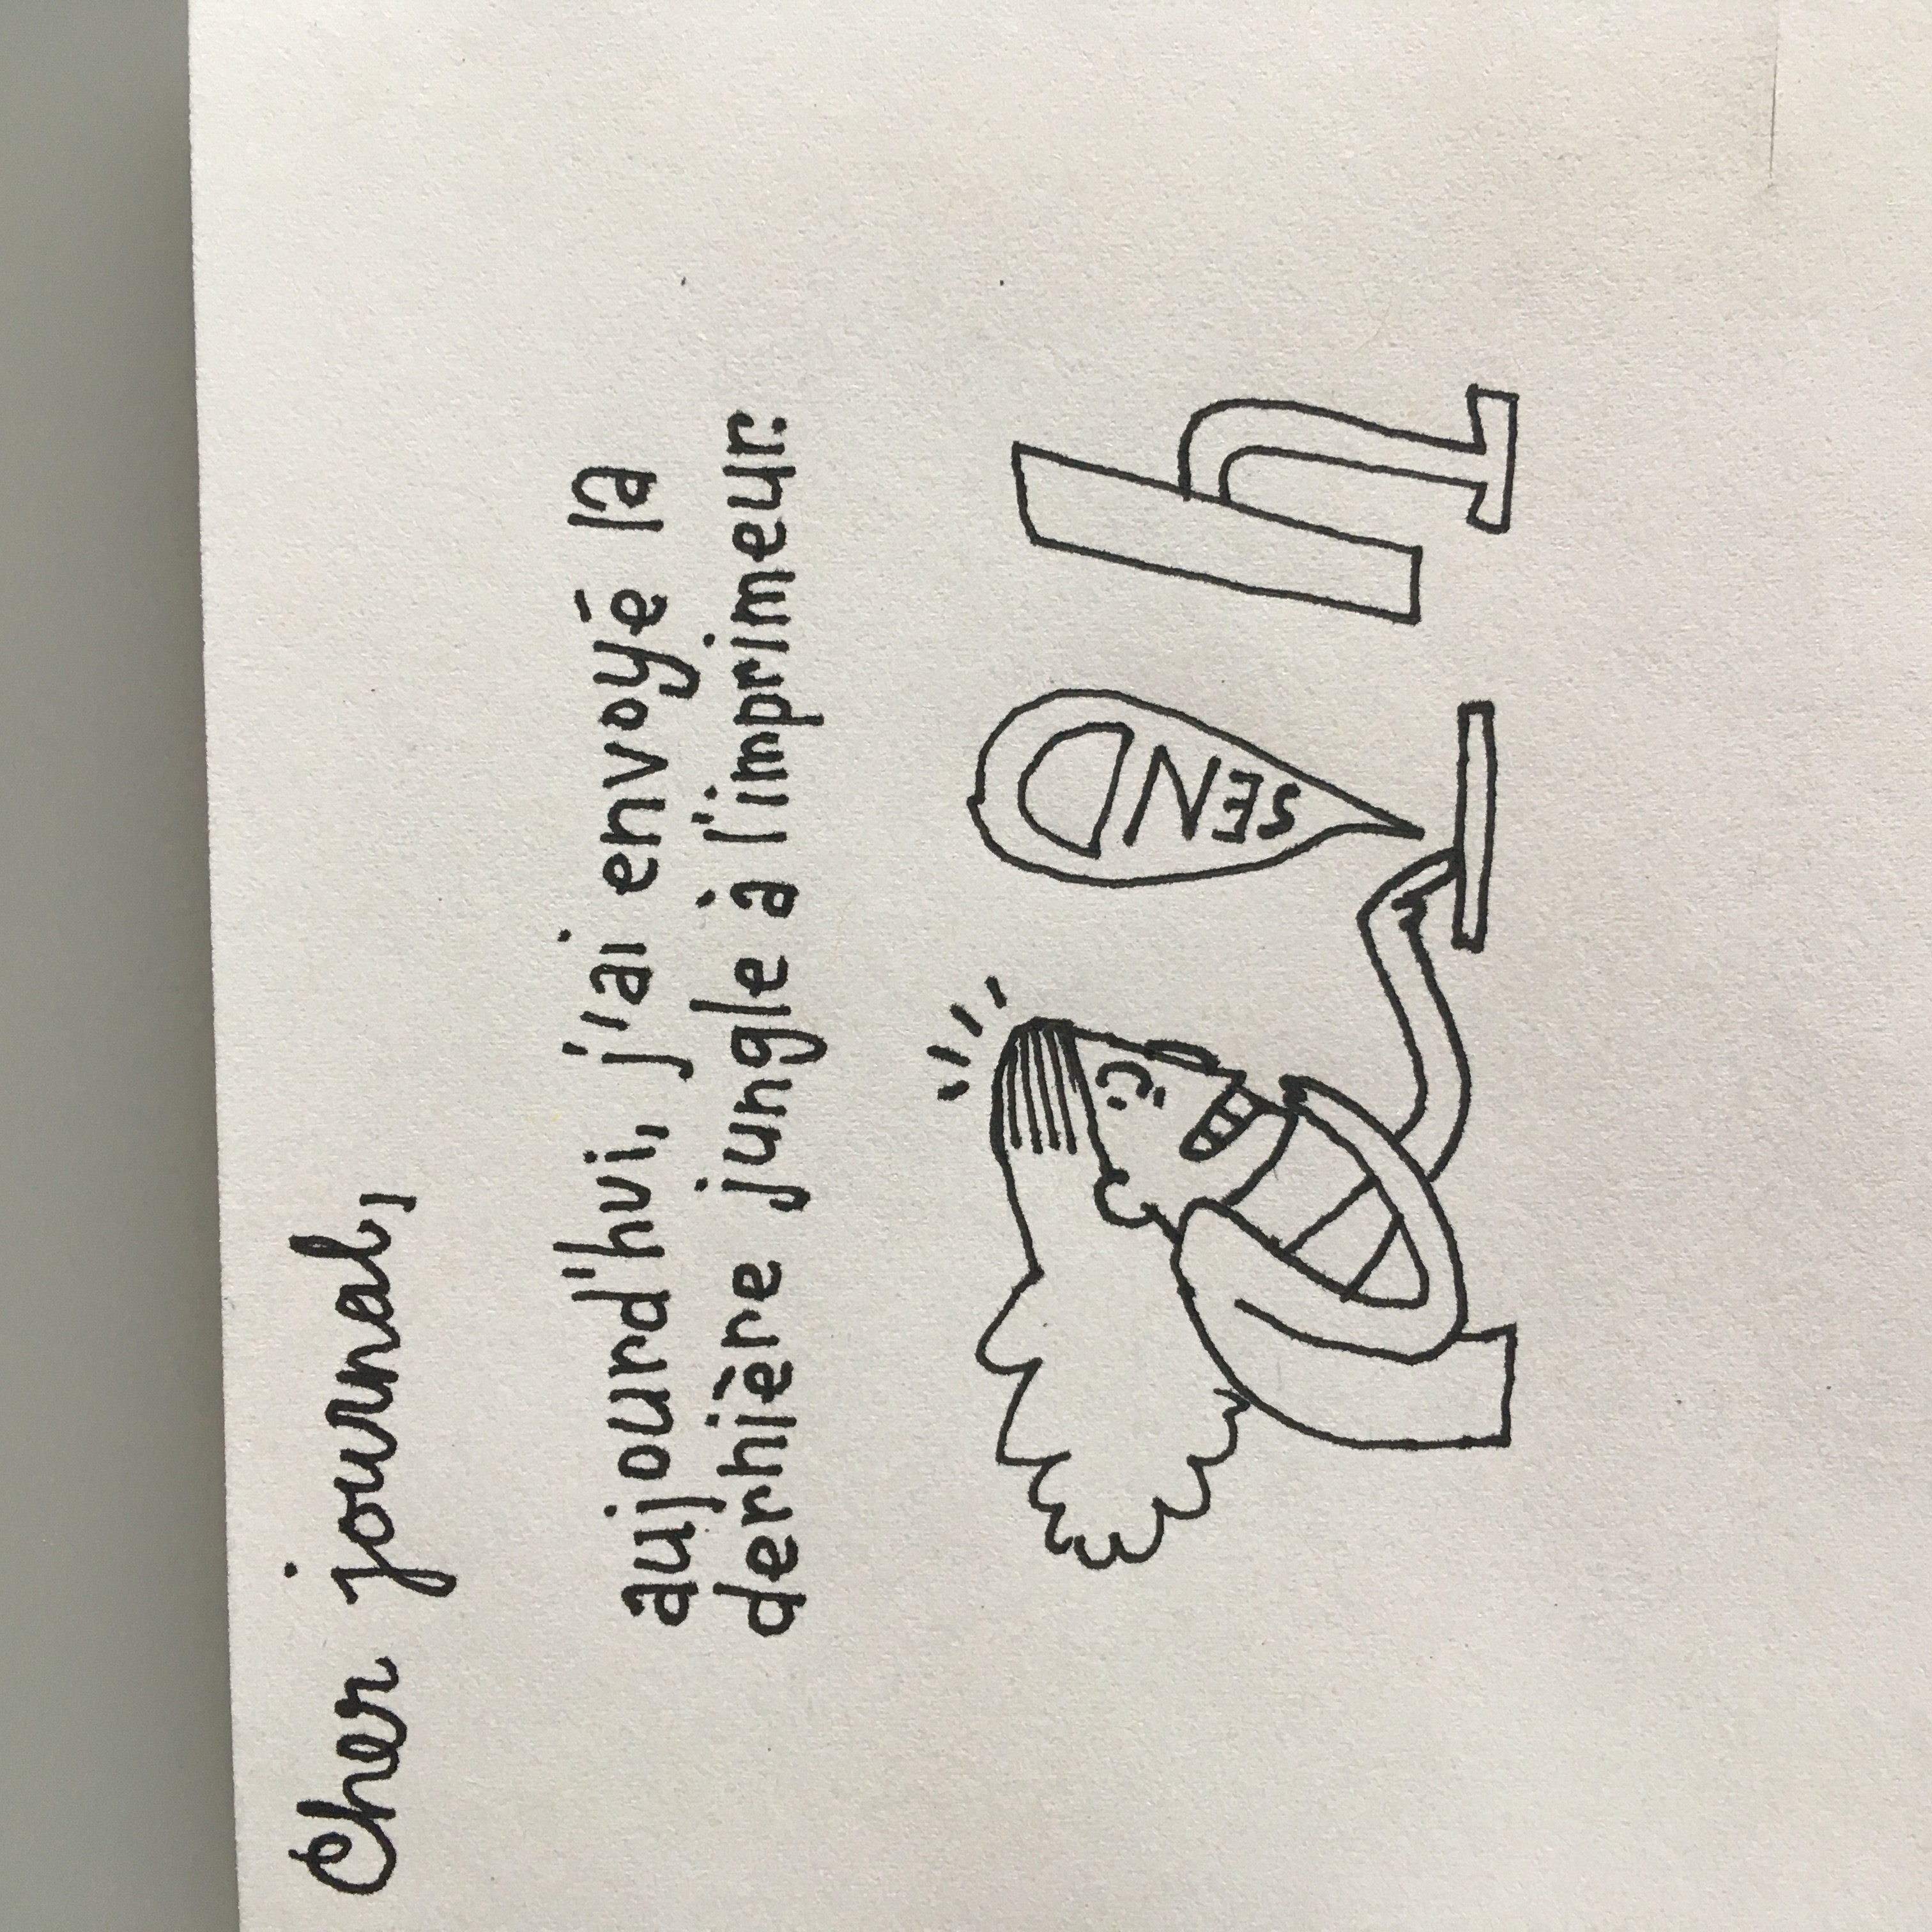 Cher journal,
aujourd'hui, j'ai envoyé la
dernière jungle à l'imprimeur.
SEND